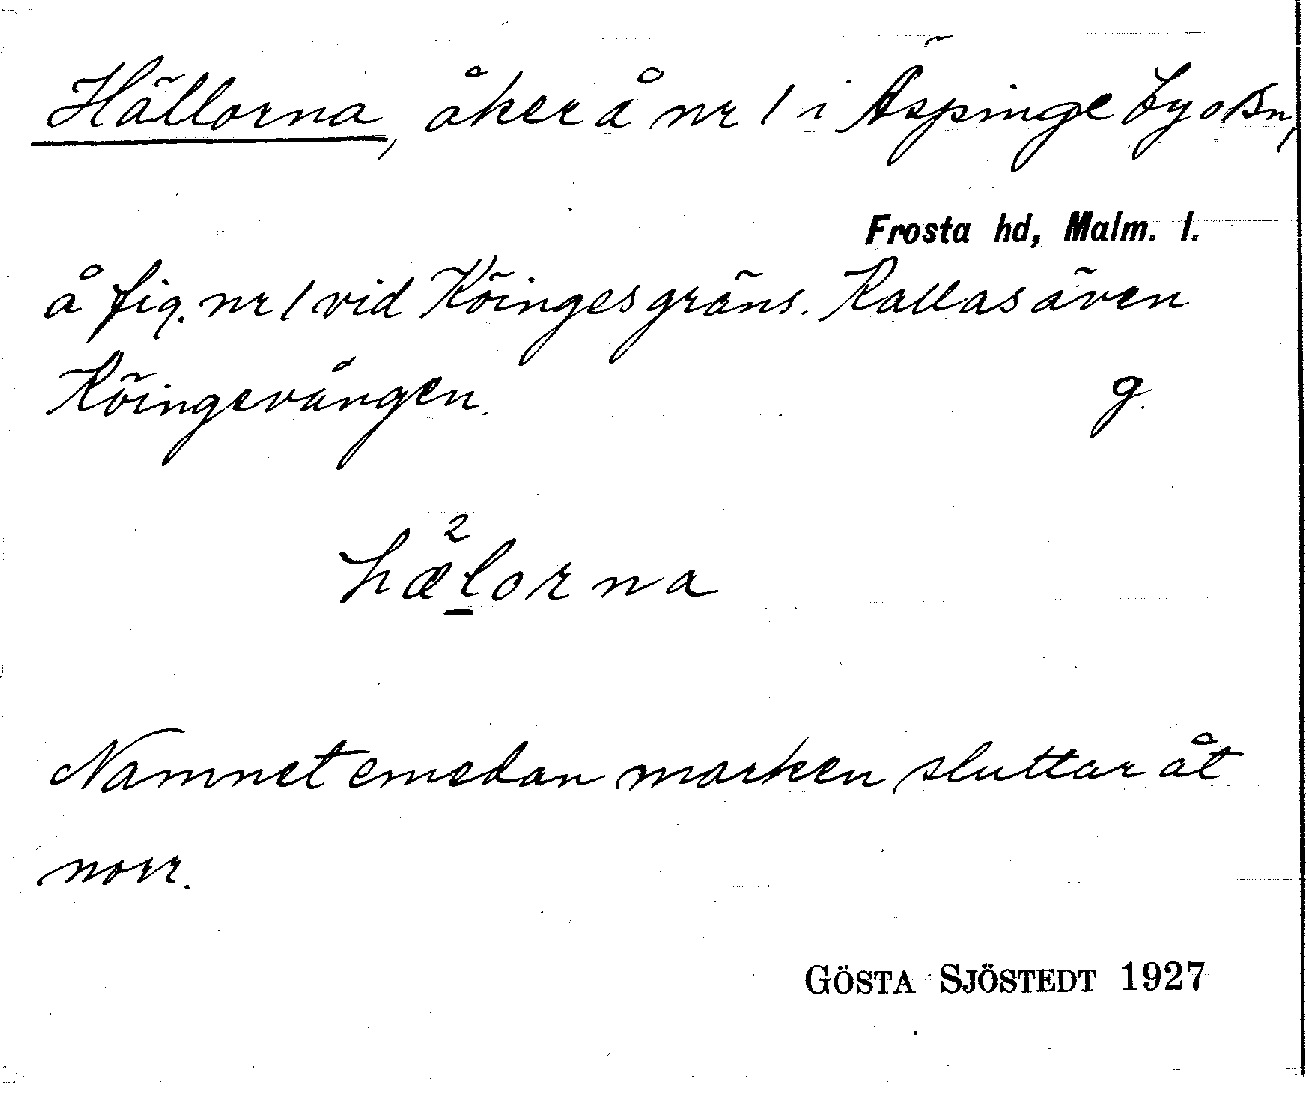 Hällorna, åker å nr 1 i Äspinge by o sn,
Frosta hd, Malm. l.
å fig. nr 1 vid Köinges gräns. Kallas även
Köingevången. g.
hæ²lorna
Namnet emedan marken sluttar åt
norr.
GÖSTA SJÖSTEDT 1927